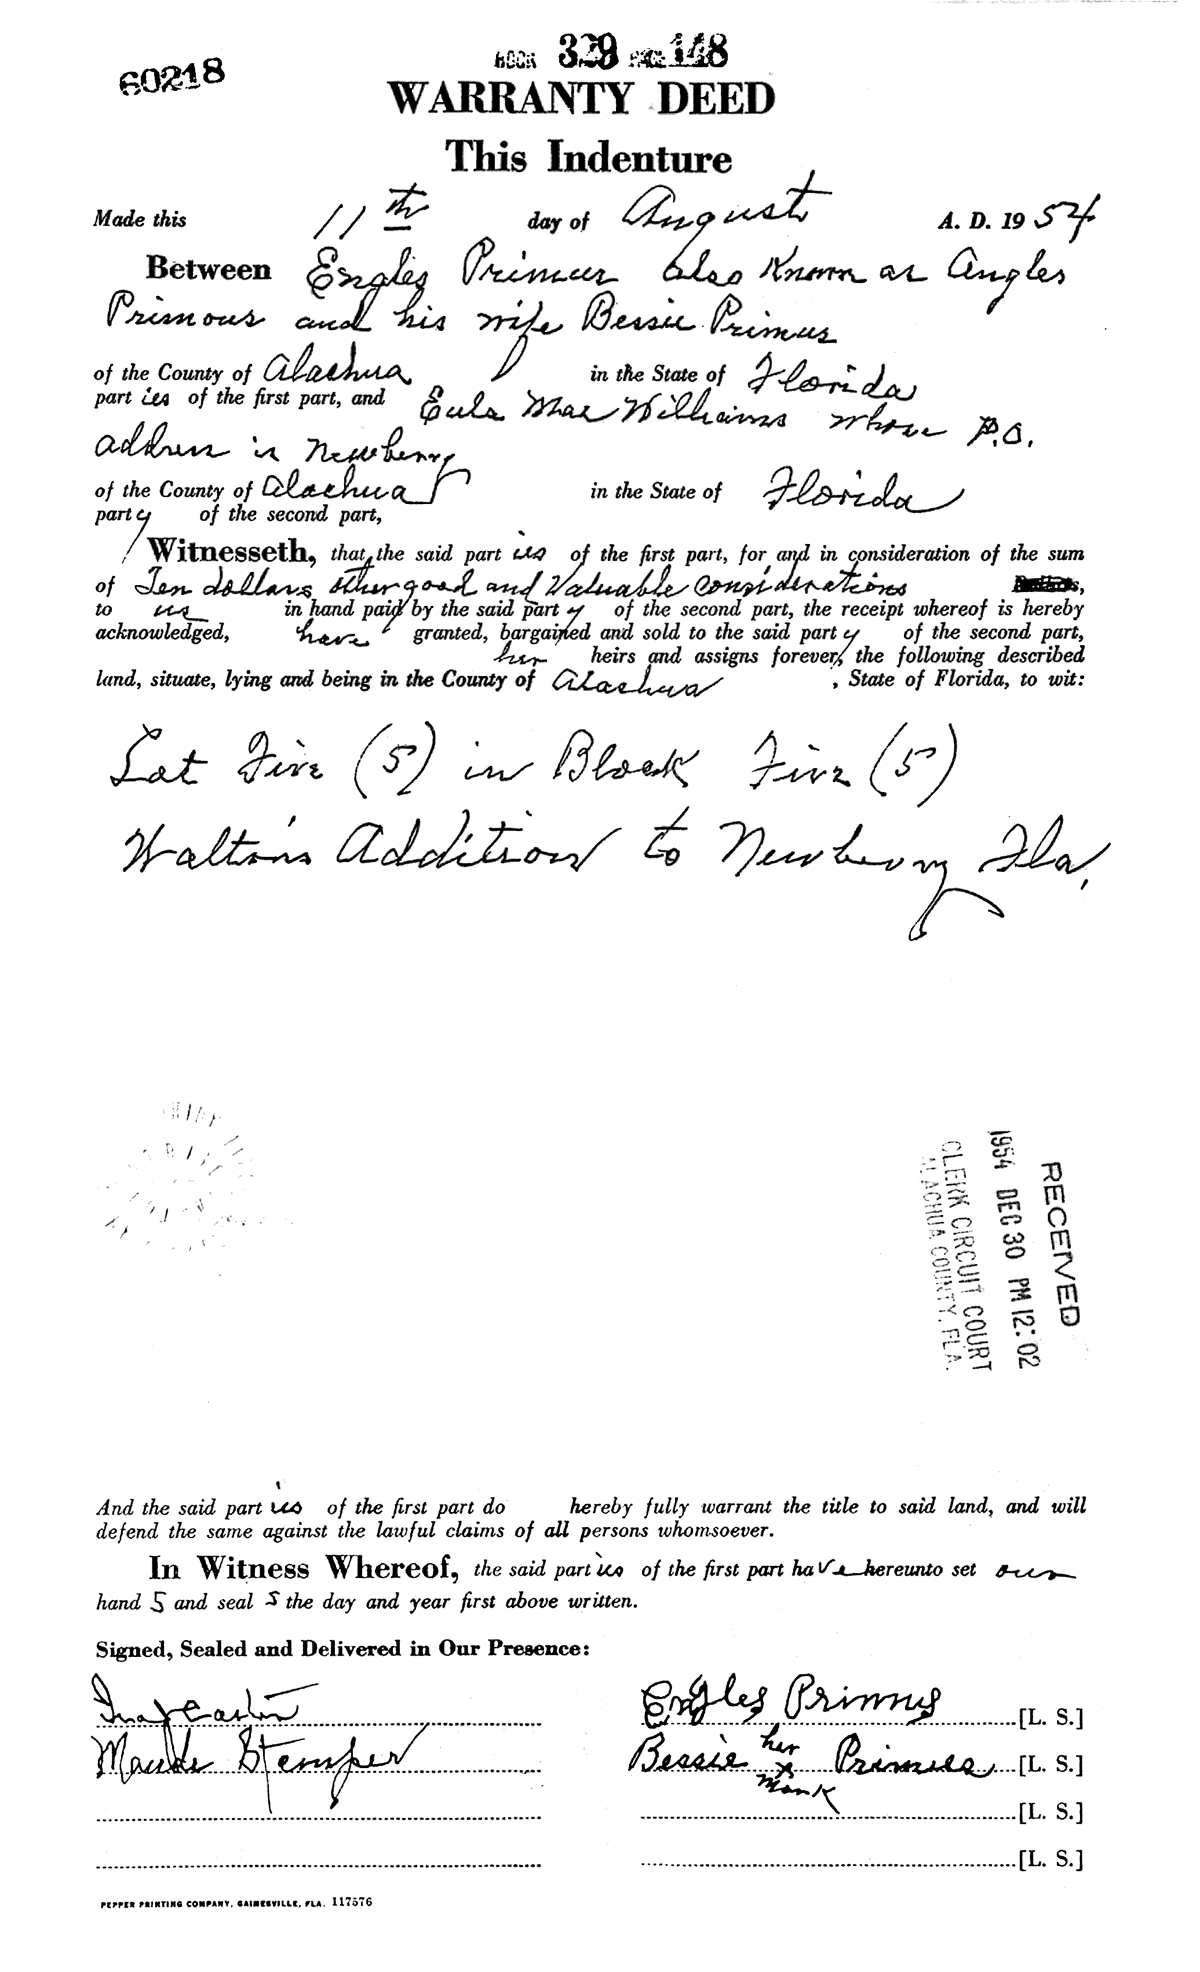 60218
BOOK 329 PAGE 148
WARRANTY DEED
This Indenture
Made this 11th day of August A. D. 1954
Between Engles Primus also Known as Angles
Primous and his wife Bessie Primus
of the County of Alachua in the State of Florida
part ies of the first part, and Eula Mae Williams whose P.O.
address is Newberry
of the County of Alachua in the State of Florida
party of the second part,
Witnesseth, that the said part ies of the first part, for and in consideration of the sum
of Ten dollars other good and Valuable Considerations
to us in hand paid by the said party of the second part, the receipt whereof is hereby
acknowledged, have granted, bargained and sold to the said party of the second part,
her heirs and assigns forever, the following described
land, situate, lying and being in the County of Alachua, State of Florida, to wit:
Lot Five (5) in Block Five (5)
Walton's Addition to Newberry Fla.
RECEIVED
1954 DEC 30 PM 12:02
CLERK CIRCUIT COURT
ALACHUA COUNTY, FLA.
And the said part ies of the first part do hereby fully warrant the title to said land, and will
defend the same against the lawful claims of all persons whomsoever.
In Witness Whereof, the said part ies of the first part have hereunto set our
hand s and seal s the day and year first above written.
Signed, Sealed and Delivered in Our Presence:
Engles Primus [L. S.]
Maude Stemper Bessie her x mark Primus [L. S.]
[L. S.]
[L. S.]
PEPPER PRINTING COMPANY, GAINESVILLE, FLA. 117576